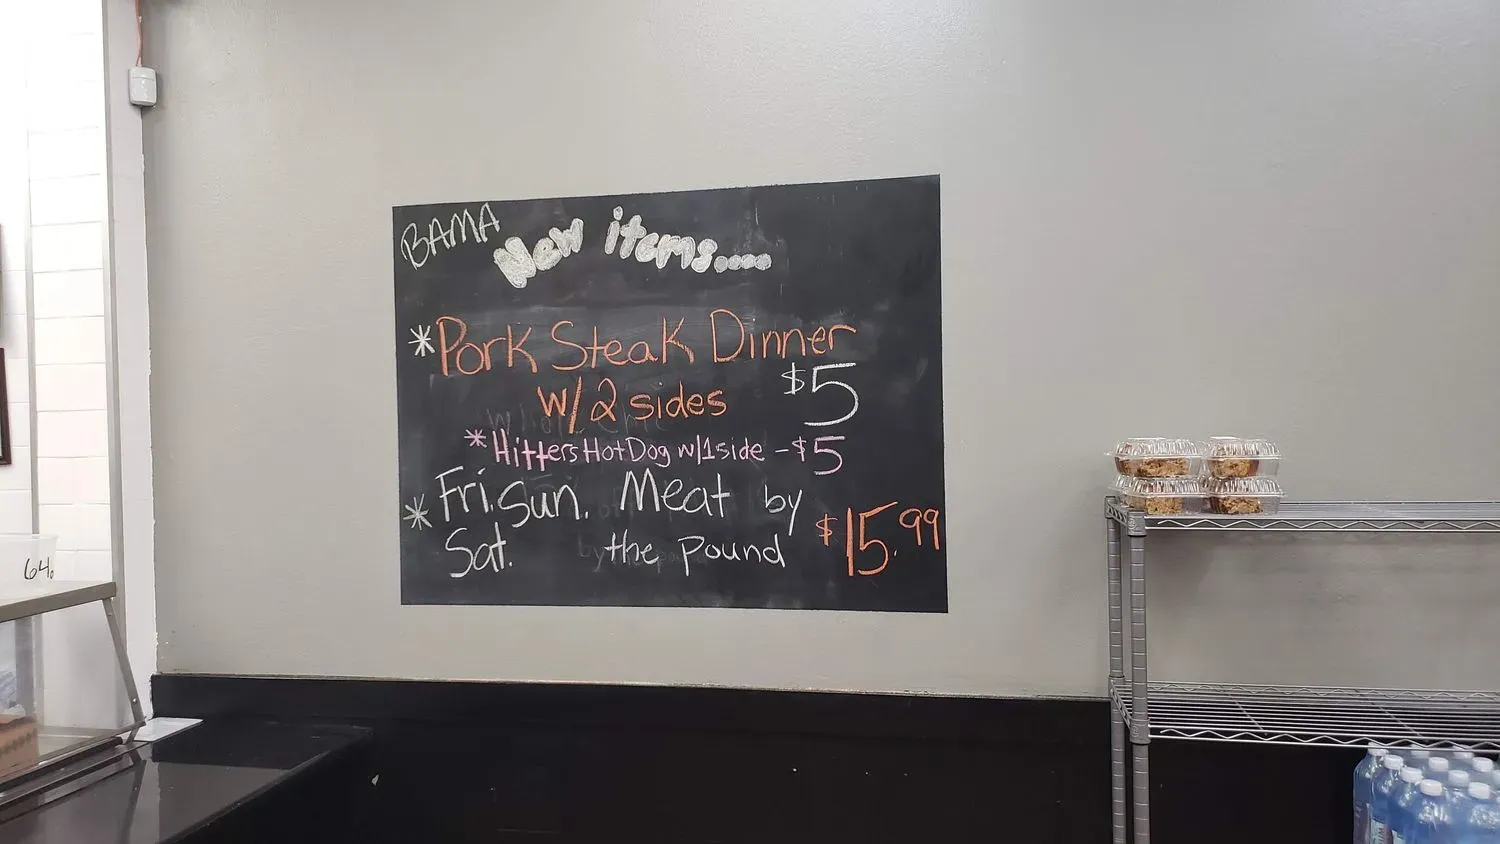 BAMA New items....
*Pork Steak Dinner
w/2 sides $5
*Hitters Hot Dog w/1 side - $5
* Fri. Sun. Meat by
Sat. the pound $15.99
64